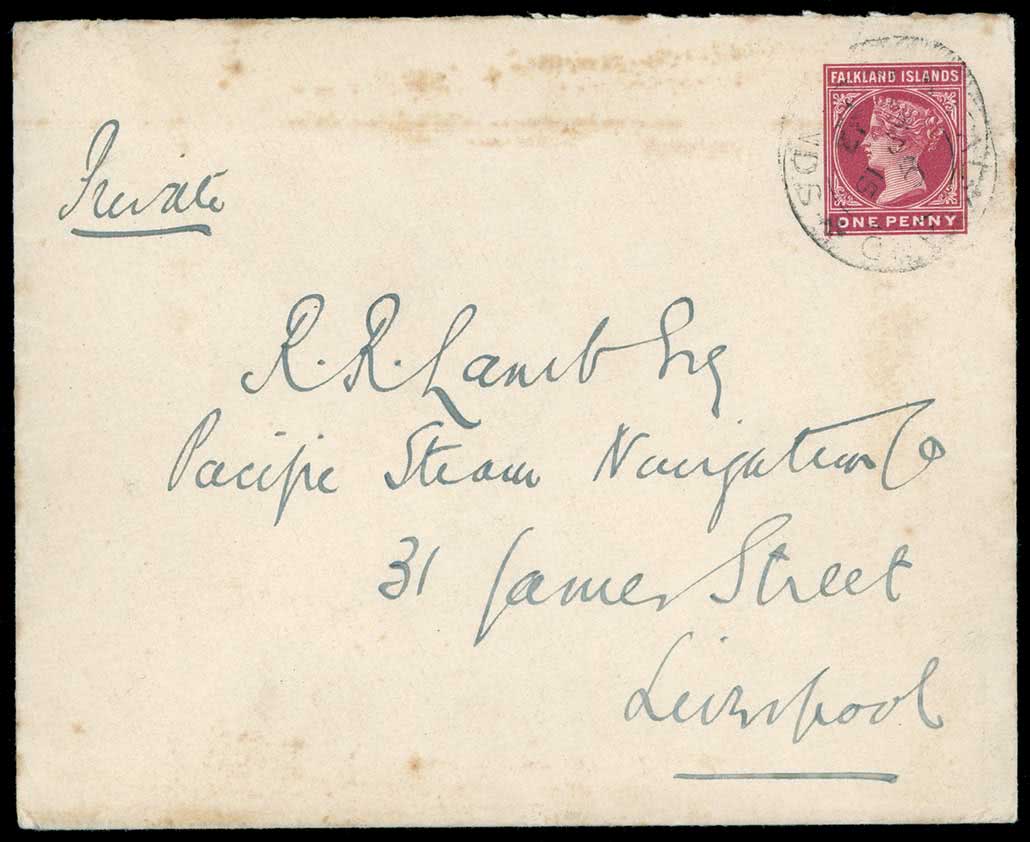 FALKLAND ISLANDS
ONE PENNY
Private
R. R. Lamb Esq
Pacific Steam Navigation Co
31 James Street
Liverpool